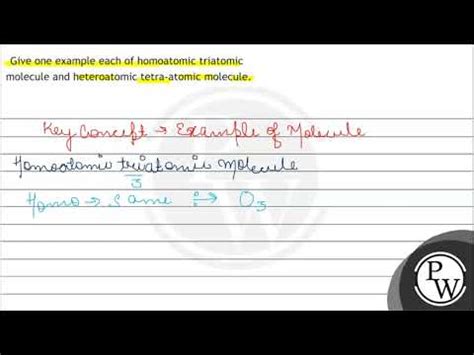 Give one example each of homoatomic triatomic
molecule and heteroatomic tetra-atomic molecule.
Key Concept → Example of Molecule
Homoatomic triatomic Molecule
3
Homo → same → O3
PW
PW